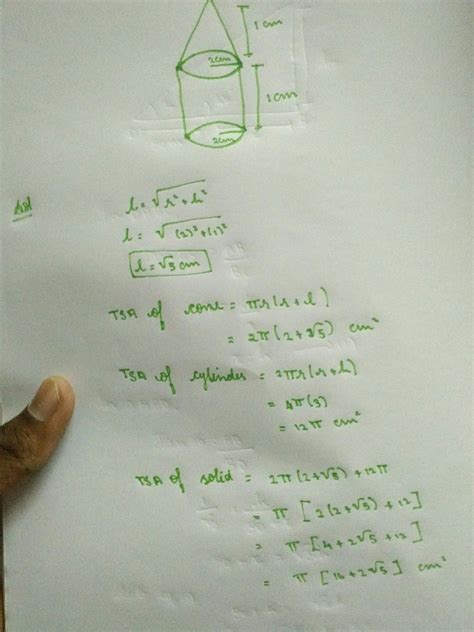 1cm
2cm
1cm
2cm
Ans
l = √r²+h²
l = √(2)²+(1)²
l = √5 cm
TSA of cone = πr(r+l)
= 2π(2+√5) cm²
TSA of cylinder = 2πr(r+h)
= 4π(3)
= 12π cm²
TSA of solid = 2π(2+√5) + 12π
= π [2(2+√5) + 12]
= π [4+2√5 + 12]
= π [16+2√5] cm²